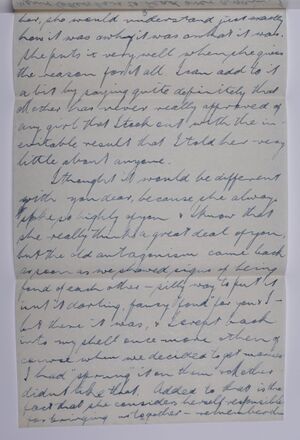 her, she would understand just exactly
how it was & why it was & what it was.
She puts it very well when she gives
the reason for it all. I can add to it
a bit by saying quite definitely that
Mother has never really approved of
any girl that I took out with the in-
evitable result that I told her very
little about anyone.
I thought it would be different
with you dear, because she always
spoke so highly of you & I know that
she really thinks a great deal of you,
but the old antagonism came back
as soon as we showed signs of being
fond of each other – silly way to put it
isn't it darling, fancy "fond" for you & I –
but there it was, & I crept back
into my shell once more & then of
course when we decided to get married
I had "sprung" it on them & Mother
didn't like that. Added to that is the
fact that she considers herself responsible
for bringing us together – remember